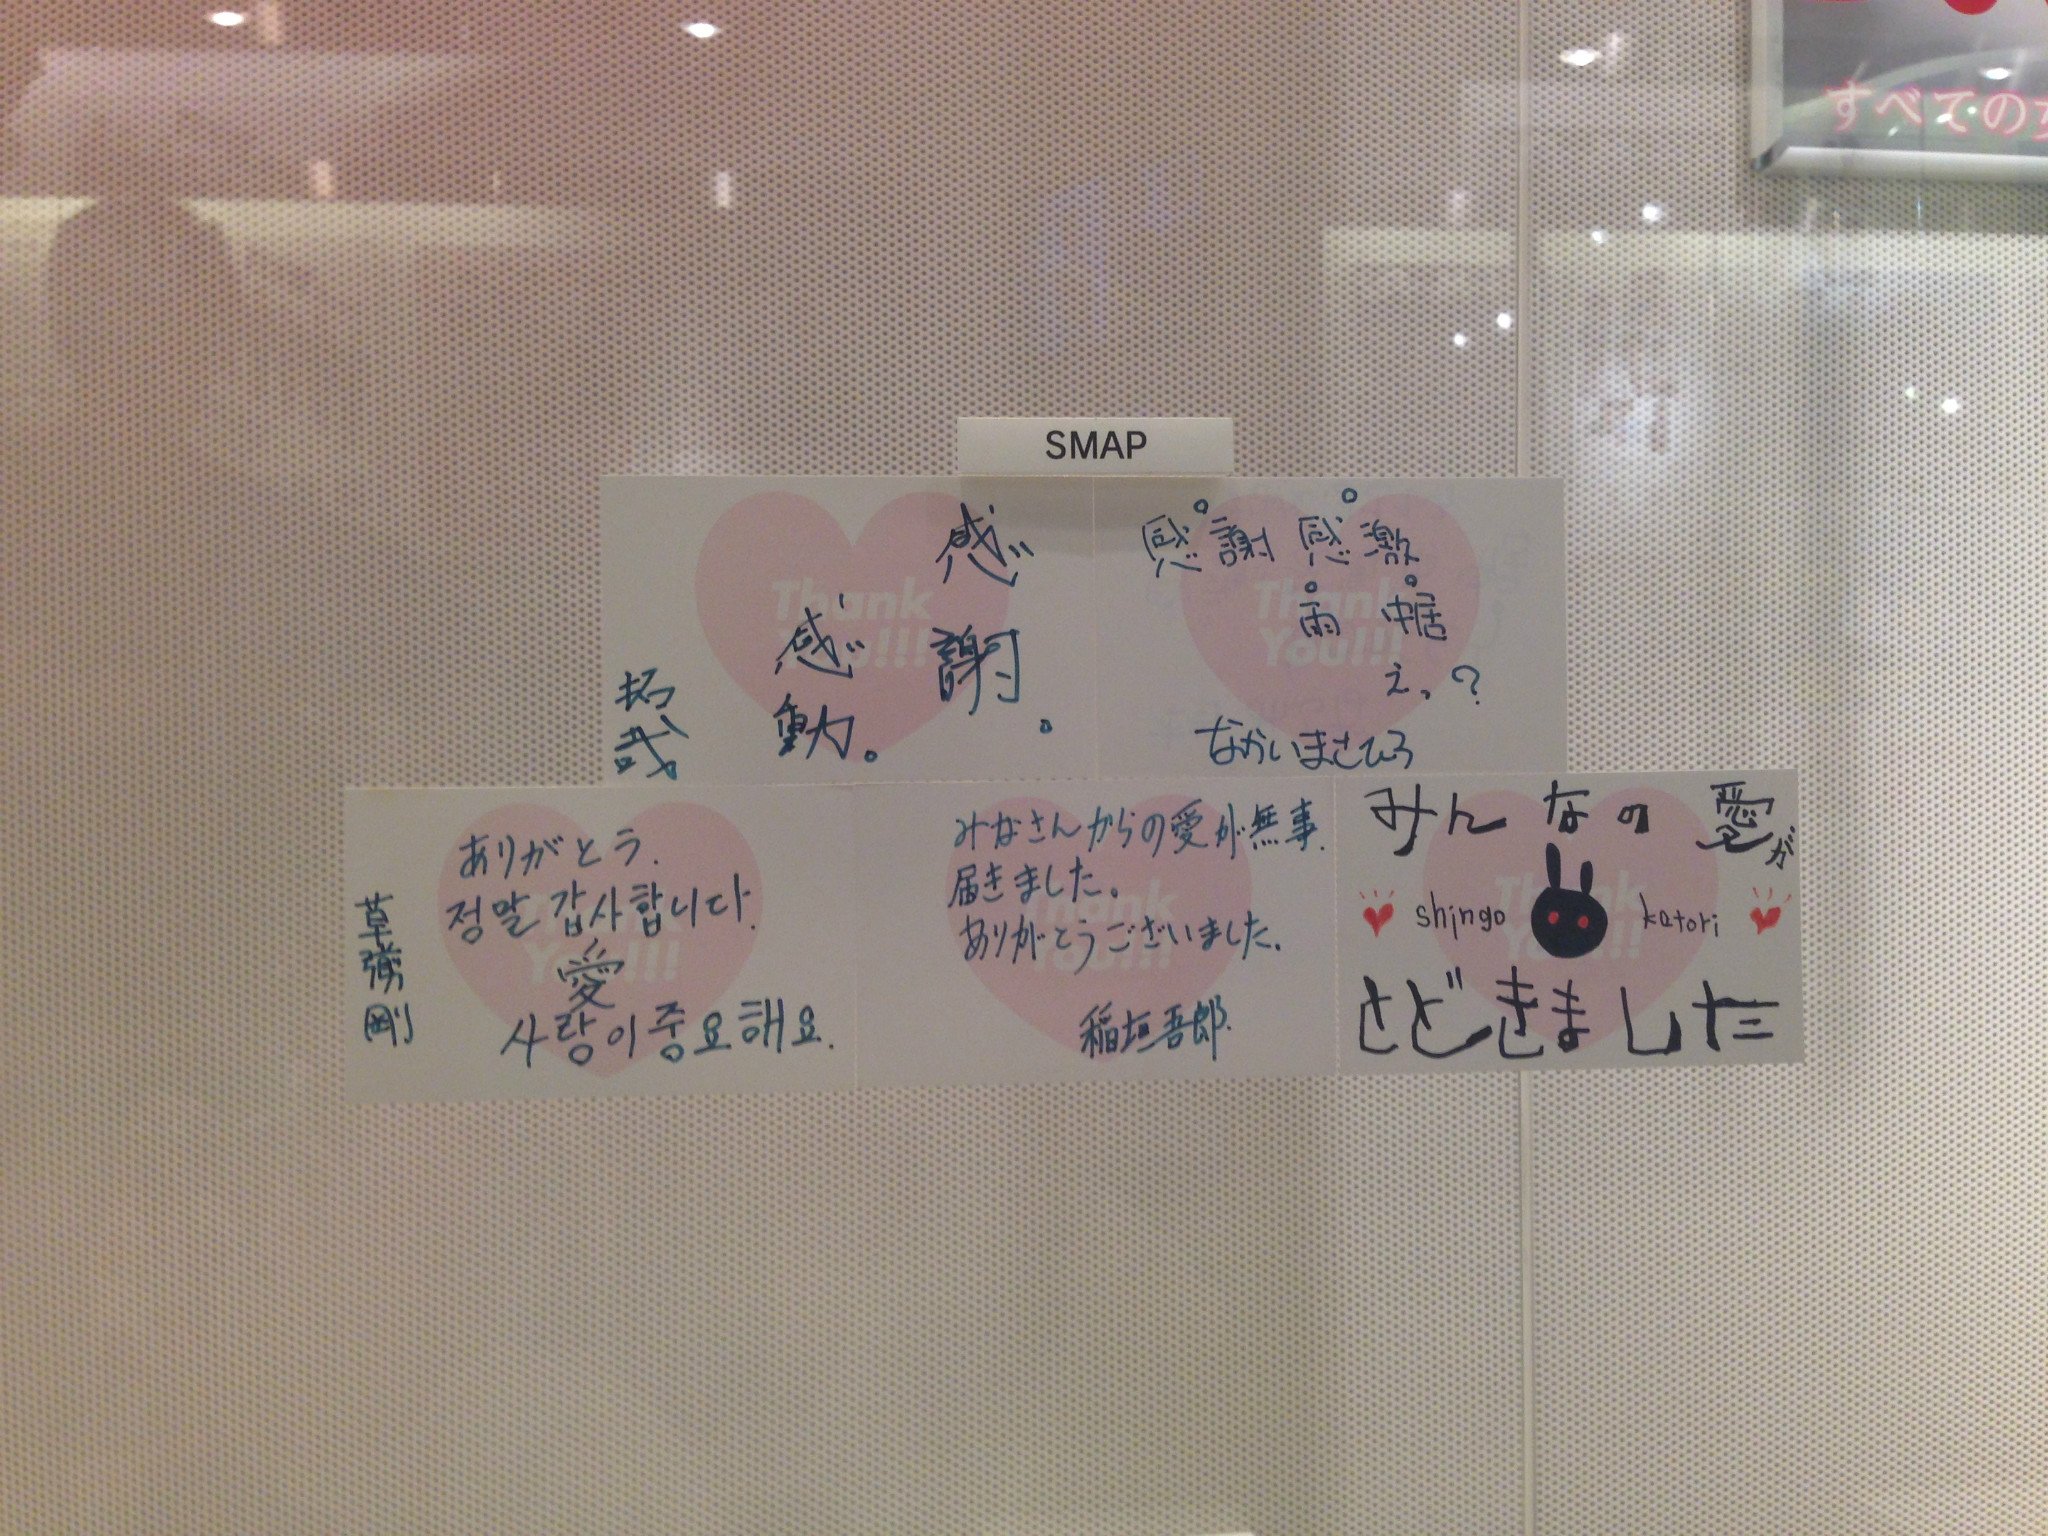 すべての
SMAP
感謝。
感動。
拓哉
感謝感激
雨 中居
え、?
なかいまさひろ
Thank
You!!!
ありがとう.
정말 감사합니다.
愛
사랑이 중요해요.
草彅剛
みなさんからの愛が無事.
届きました。
ありがとうございました。
稲垣吾郎.
みんなの愛が
shingo katori
とどきました